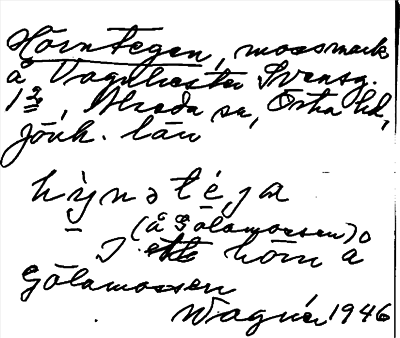 Hörntegen, mossmark
å Vagnhester Svensg.
1 2, Alseda sn, Östra hd,
jönk. län
hỳnətéja
(å Gölamossen)
I ett hörn å
Gölamossen
Wagnér 1946